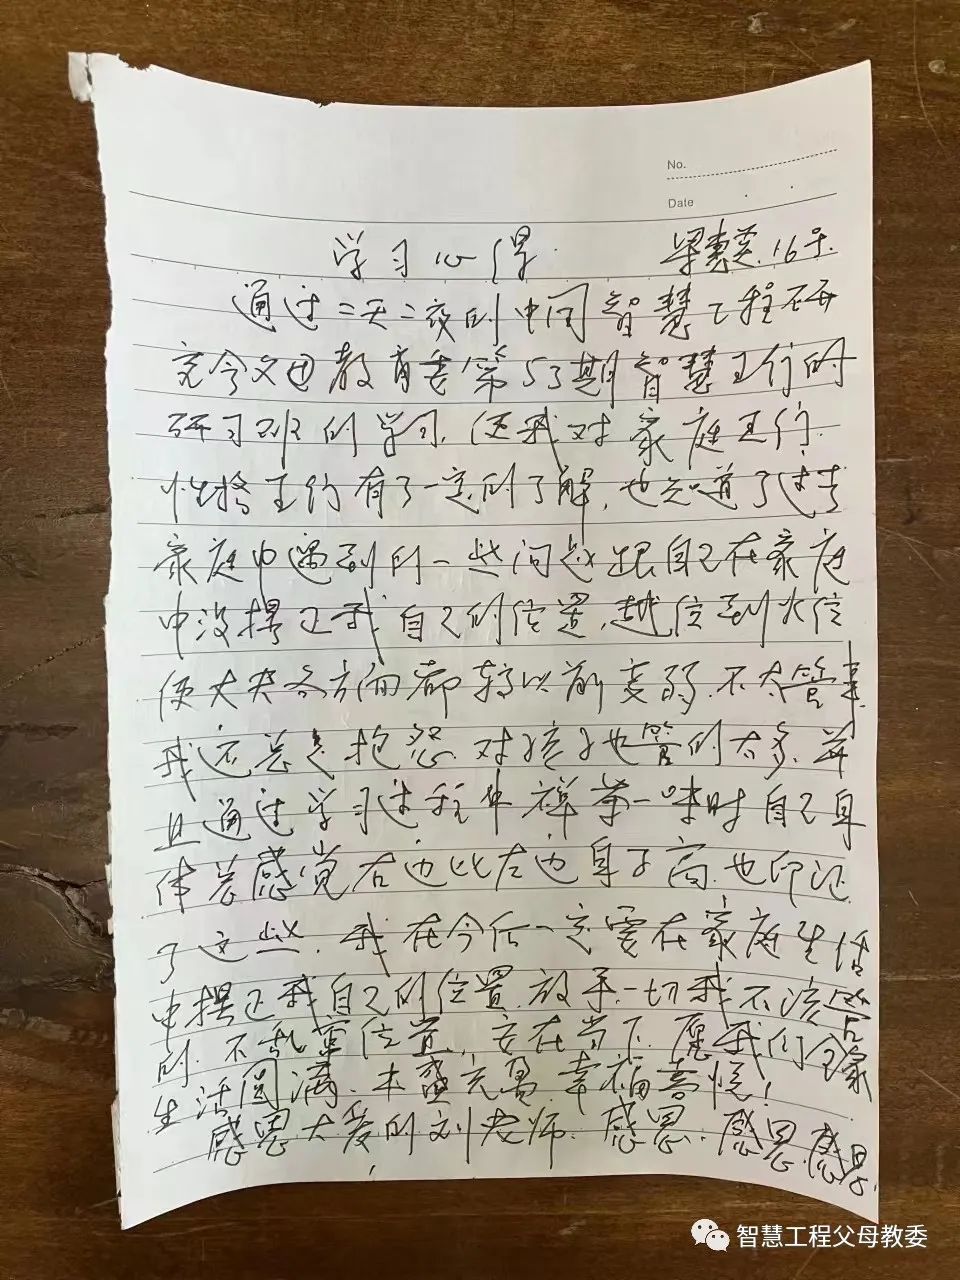 No.
Date
学习心得 梁惠芝.16号.
通过二天二夜的中国智慧工程研
究会父母教育委第53期智慧五行的
研习班的学习,使我对家庭五行.
性格五行有了一定的了解,也知道了过去
家庭中遇到的一些问题跟自己在家庭
中没摆正我自己的位置,越位到火位
使丈夫各方面都较以前变弱.不太管事.
我还总是抱怨.对孩子也管的太多.并
且通过学习过程中禅第一味时自己身
体总感觉右边比左边身子高.也印证
了这些.我在今后一定要在家庭生活
中摆正我自己的位置.放手一切我不该管
的.不乱窜位置,安在当下.愿我们全家
生活圆满.木盛充易.幸福喜悦!
感恩大爱的刘老师.感恩.感恩.感恩.
智慧工程父母教委